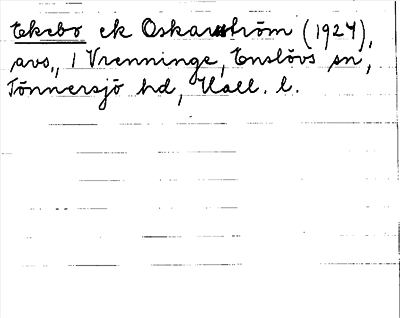 Ekebo ek Oskarström (1927),
avs., 1 Vrenninge, Enslövs sn,
Tönnersjö hd, Hall. l.